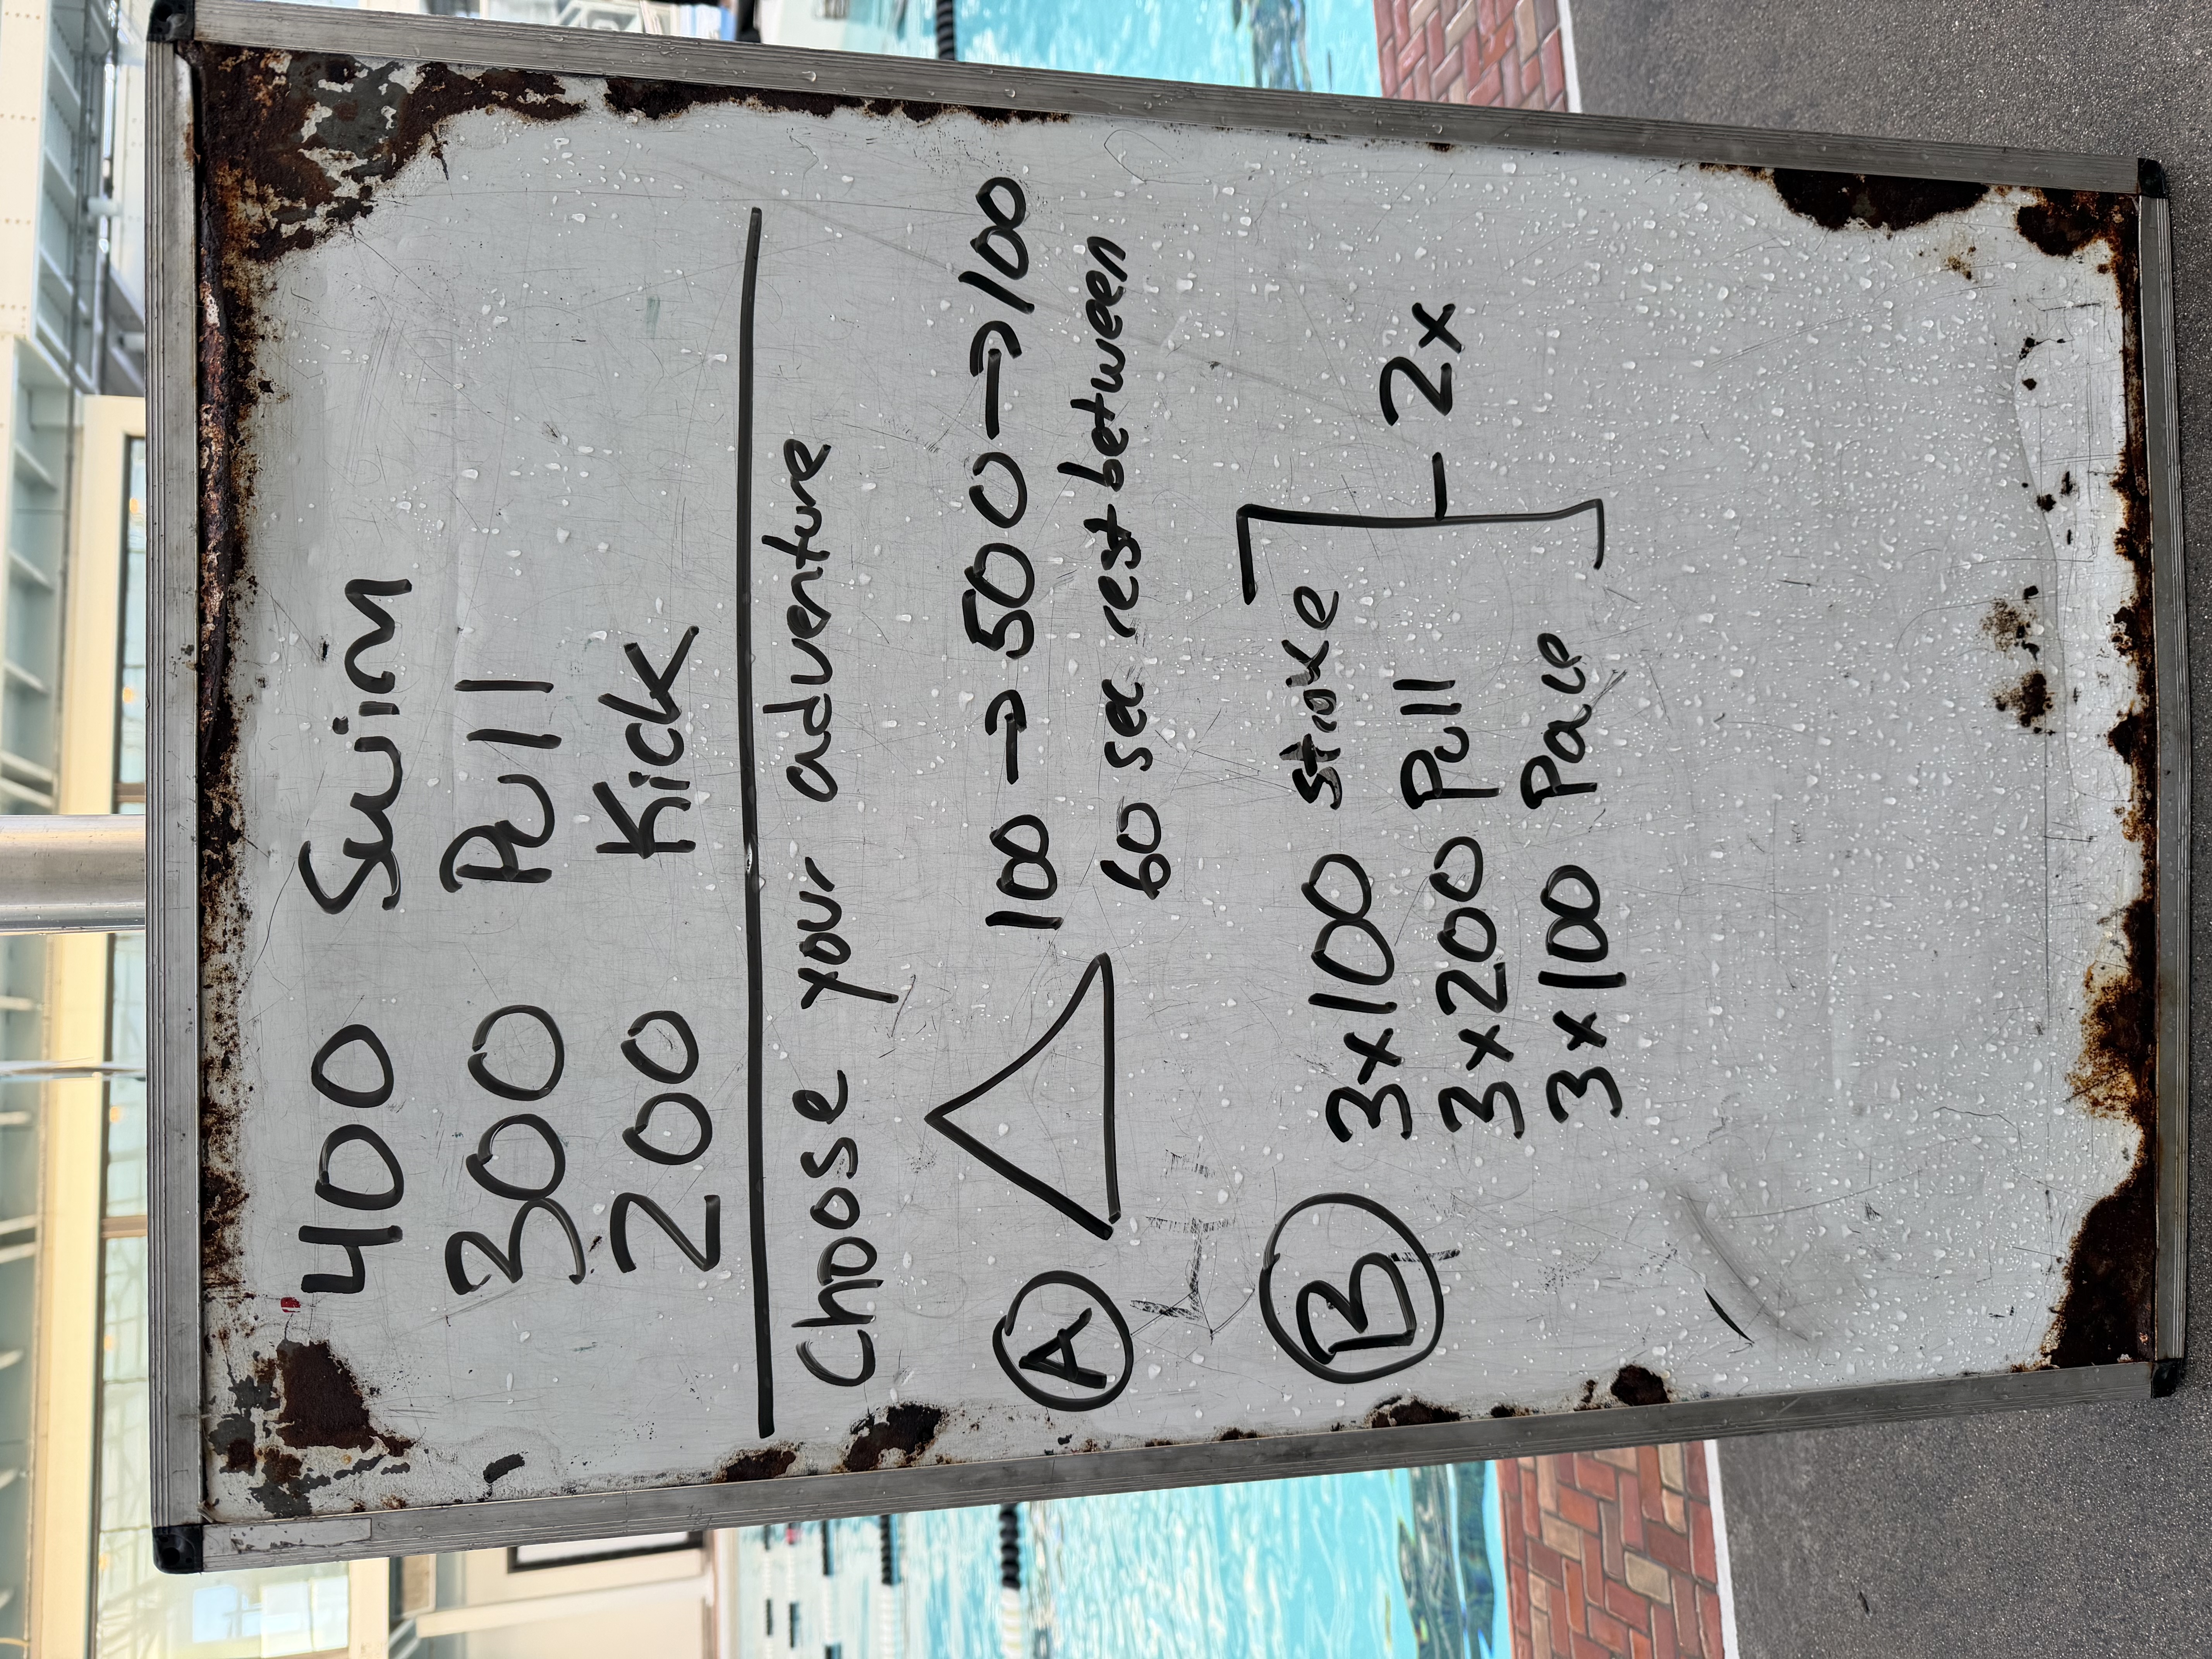 400 Swim
300 Pull
200 Kick
Choose your adventure
A 100 → 500 → 100
60 sec rest between
B 3x100 stroke
3x200 Pull - 2x
3x100 Pace